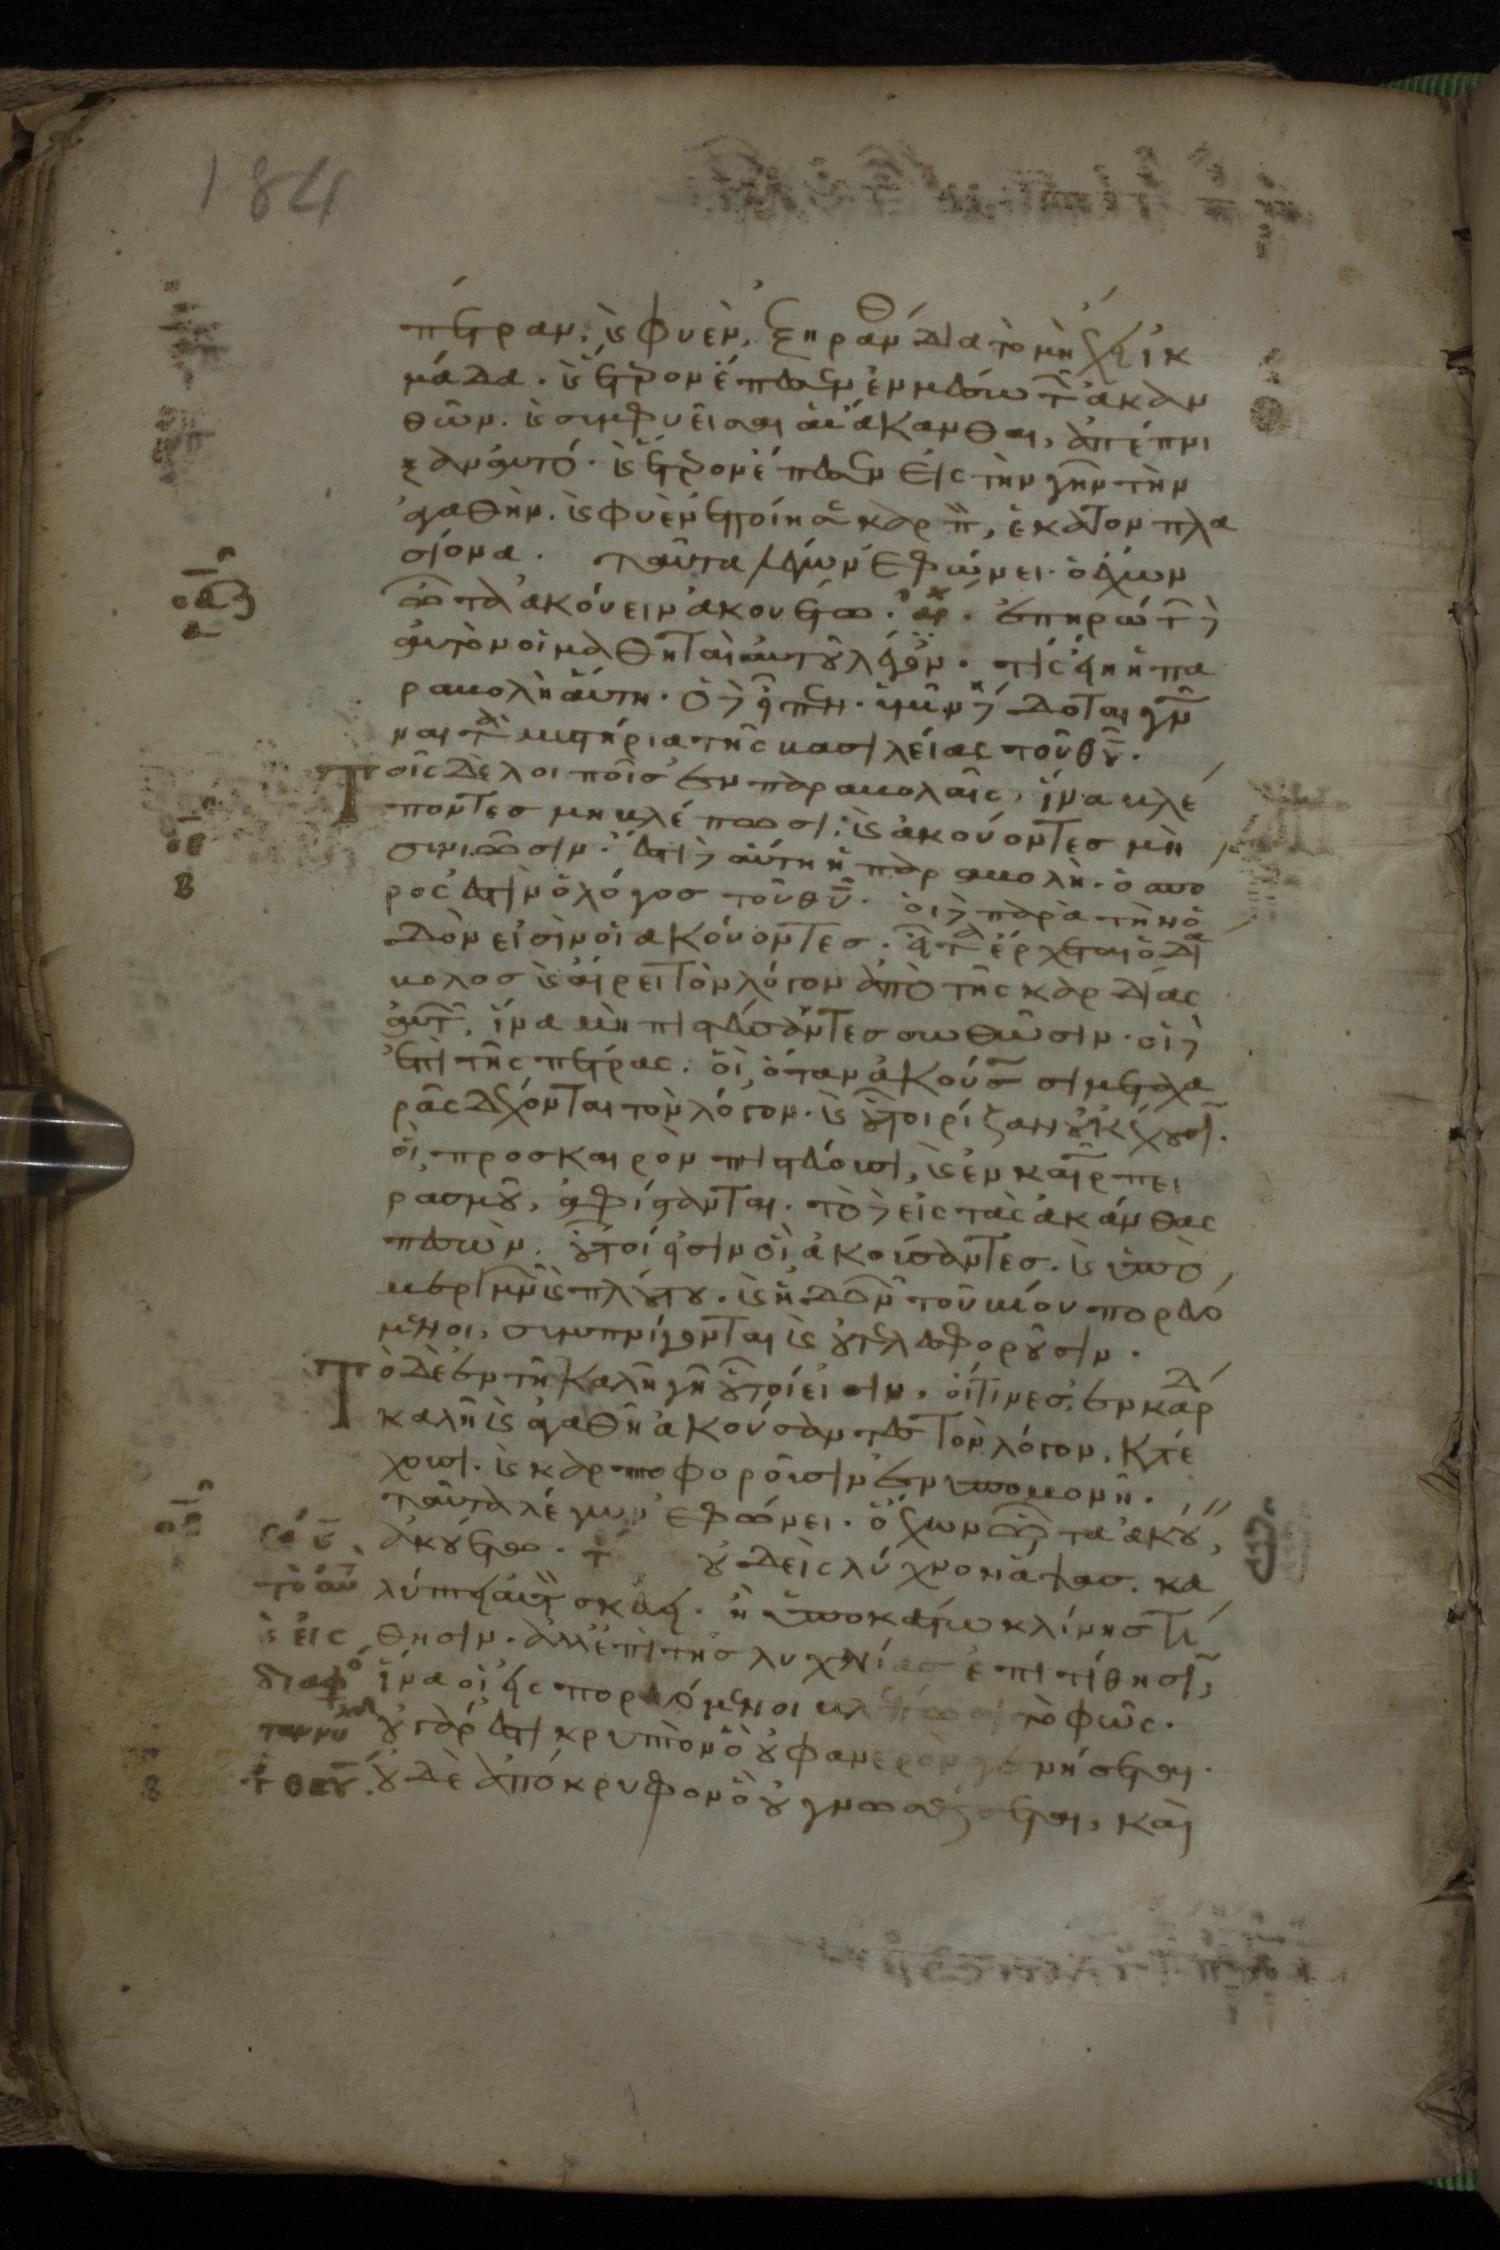 184
πέτραν, κ φυὲν, ἐξηράνθ διατὸ μὴ ἔχειν ἰκ
μάδα. κ ἕτερον ἔπεσεν ἐν μέσω τ ἀκαν
θῶν. κ συμφυεῖσαι αἱ ἄκανθαι, ἀπέπνι
ξαν αὐτό. κ ἕτερον ἔπεσεν εἰς τὴν γῆν τὴν
ἀγαθὴν. κ φυὲν ἐποίησε καρπ, ἑκατονπλα
σίονα. ταῦτα λέγων ἐφώνει. ὁ ἔχων
ὦτα ἀκούειν ἀκουέτω. ἀρχ. ἐπηρώτ δὲ
αὐτὸν οἱ μαθηταὶ αὐτοῦ λέγοντες. τίς εἴη ἡ πα
ραβολὴ αὕτη. ὁ δὲ εἶπεν. ὑμῖν δέδοται γνῶ
ναι τὰ μυστήρια τῆς βασιλείας τοῦ θυ.
Τοῖς δὲ λοιποῖς ἐν παραβολαῖς, ἵνα βλέ
ποντες μὴ βλέπωσι. κ ἀκούοντες μὴ
συνιῶσιν. ἔστι δὲ αὕτη ἡ παραβολὴ. ὁ σπό
ρος ἐστὶν ὁ λόγος τοῦ θυ. οἱ δὲ παρὰ τὴν ὁ
δόν εἰσὶν οἱ ἀκούοντες. εἶτα ἔρχεται ὁ διά
βολος κ αἴρει τὸν λόγον ἀπὸ τῆς καρδίας
αὐτ, ἵνα μὴ πιστεύσαντες σωθῶσιν. οἱ δὲ
ἐπὶ τῆς πέτρας. οἳ ὅταν ἀκούσωσι μετὰ χα
ρᾶς δέχονται τὸν λόγον. κ οὗτοι ρίζαν οὐκ ἔχουσι.
οἳ προσκαιρὸν πιστεύουσι, κ ἐν καιρ πει
ρασμοῦ, ἀφίστανται. τὸ δὲ εἰς τὰς ἀκάνθας
πεσὼν. οὗτοί εἰσιν οἱ ἀκούσαντες. κ ὑπὸ
μεριμνῶν κ πλούτου. κ ἡδονῶν τοῦ βίου πορευό
μενοι, συμπνίγονται κ οὐ τελεσφοροῦσιν.
Τὸ δὲ ἐν τῆ καλῆ γῆ οὗτοί εἰσιν. οἵτινες ἐν καρδ
καλῆ κ ἀγαθῆ ἀκούσαντες τὸν λόγον, κατέ
χουσι. κ καρποφοροῦσιν ἐν ὑπομονῆ.
ταῦτα λέγων ἐφώνει. ὁ ἔχων ὦτα ἀκού,
ἀκουέτω. τ οὐδεὶς λύχνον ἅψας. κα
λύπτει αὐτ σκεύει. ἢ ὑποκάτω κλίνης τί
θησιν. ἀλλ' ἐπὶ τῆς λυχνίας ἐπιτίθησι,
ἵνα οἱ εἰσπορευόμενοι βλέπωσι τὸ φῶς.
οὐ γάρ ἐστι κρυπτὸν ὃ οὐ φανερὸν γενήσεται.
οὐδὲ ἀπόκρυφον ὃ οὐ γνωσθήσεται, καὶ